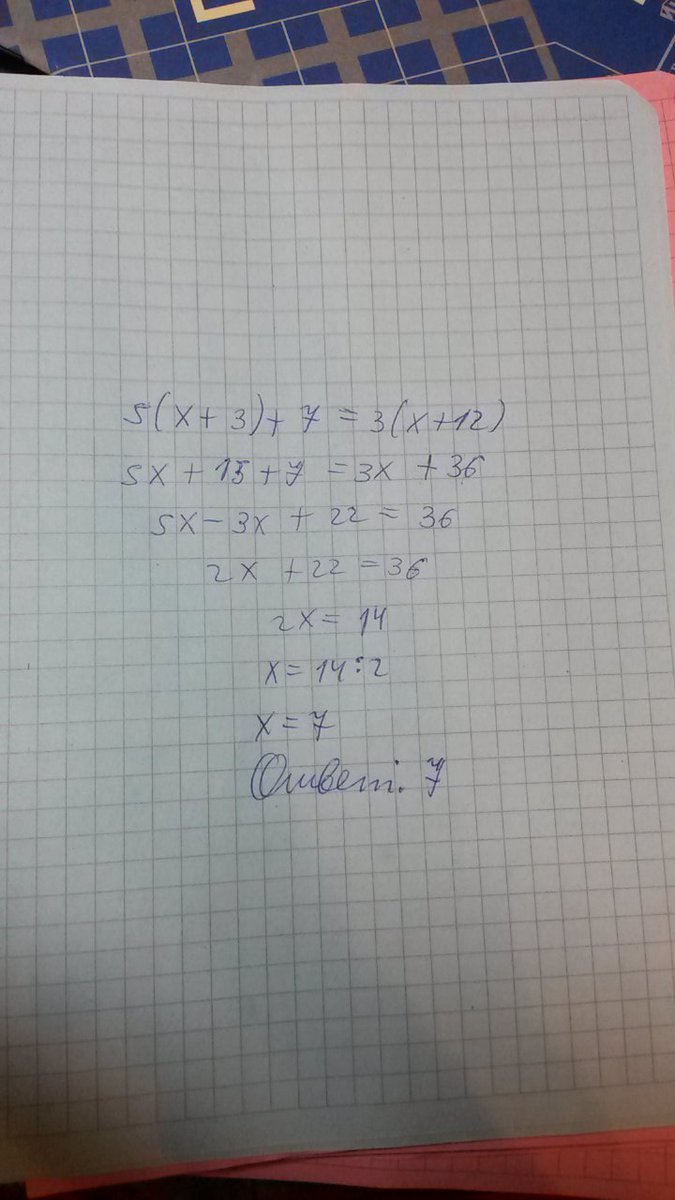 5(x+3)+7=3(x+12)
5x+15+7=3x+36
5x-3x+22=36
2x+22=36
2x=14
x=14:2
x=7
Ответ: 7